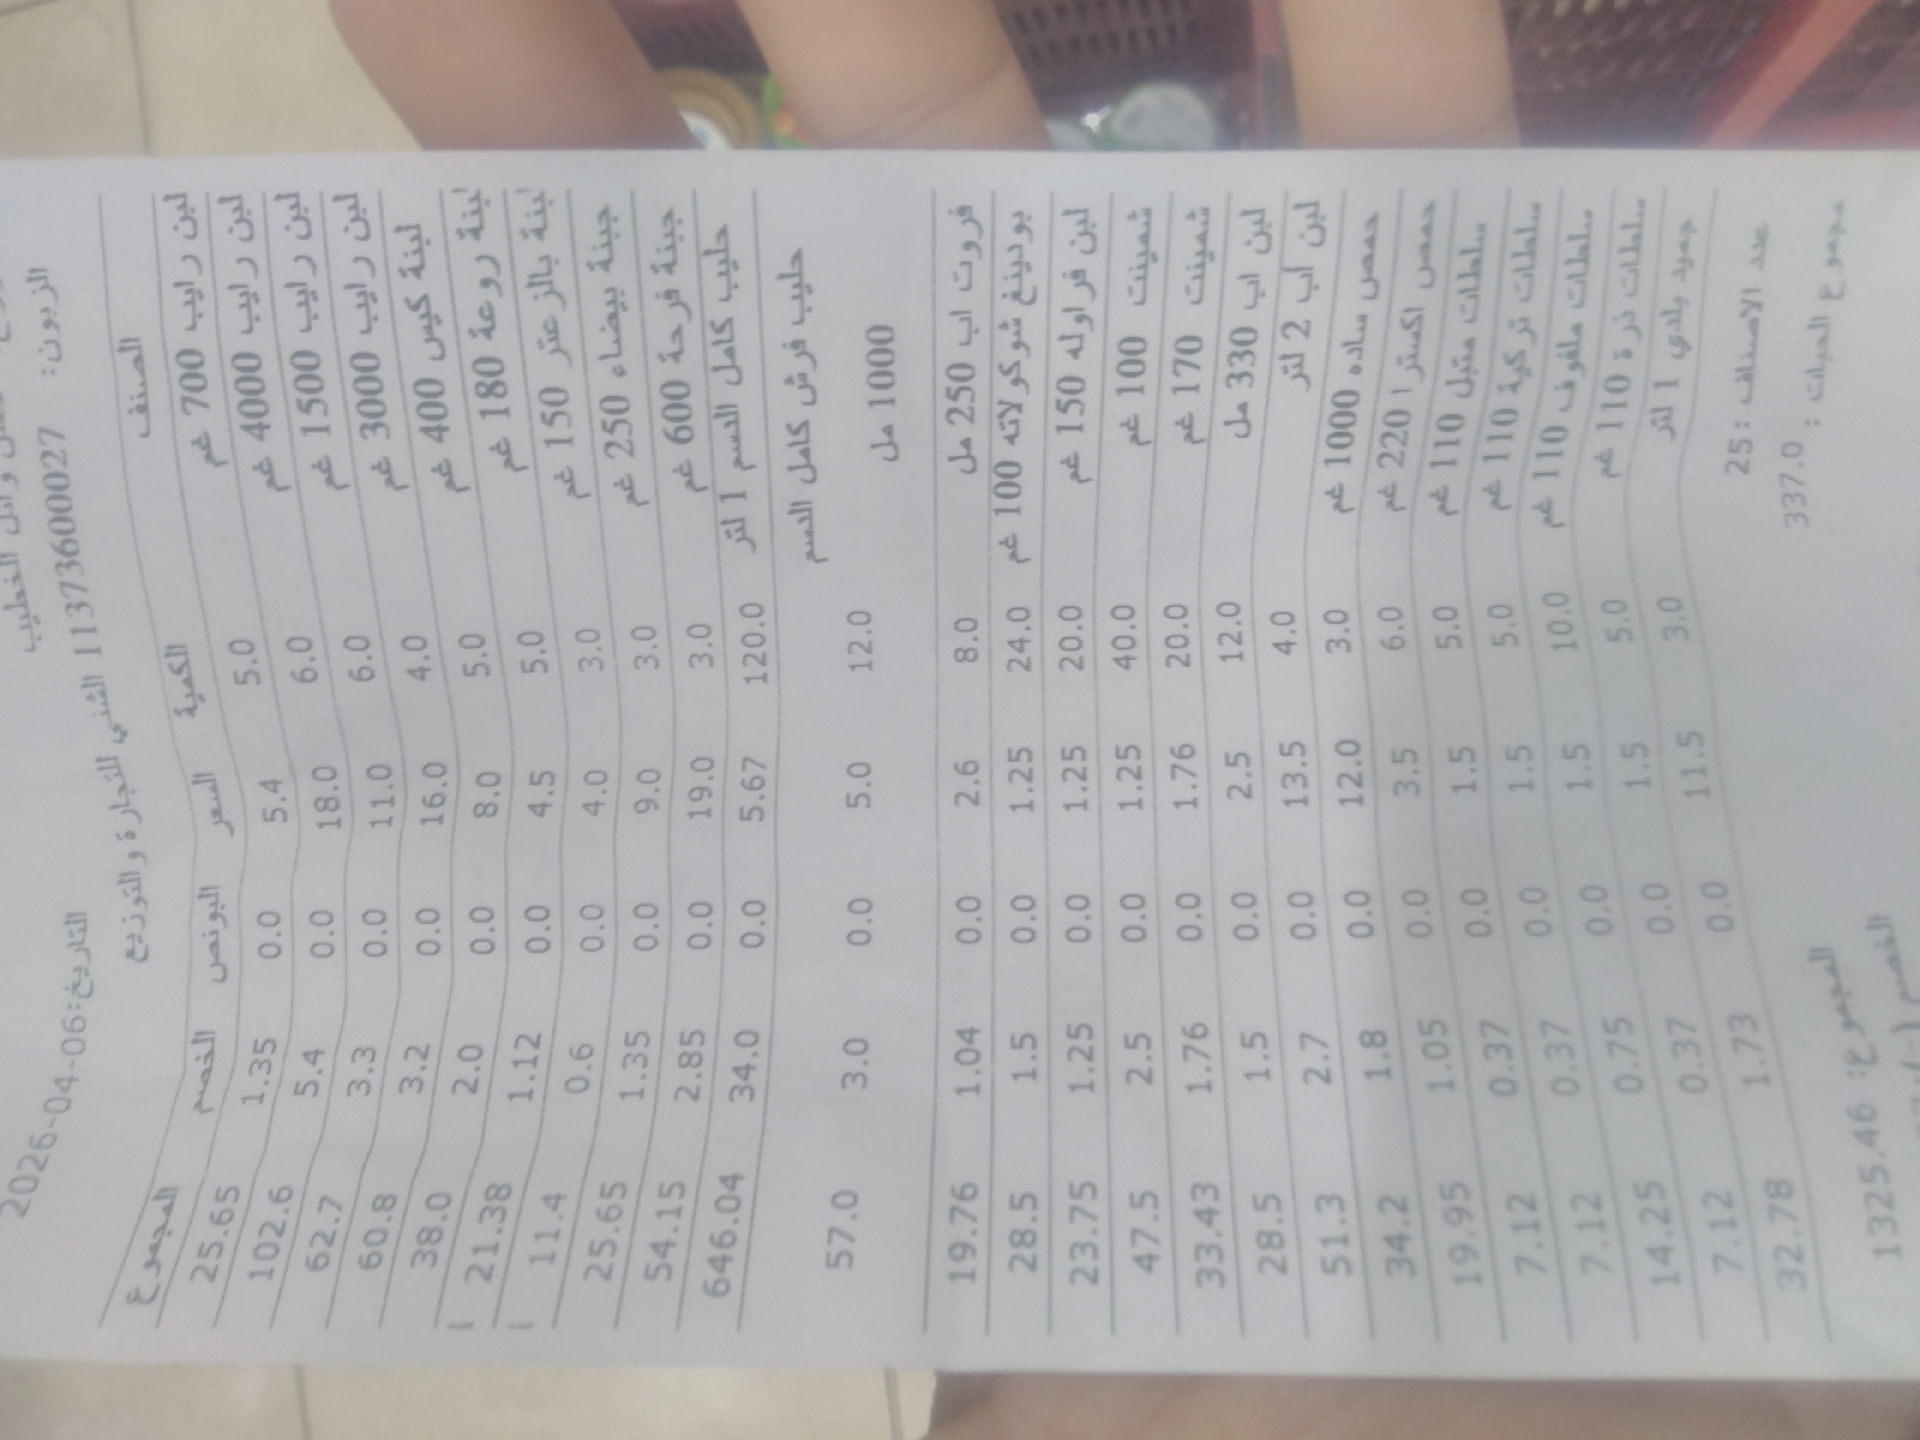 وائل الخطيب
الزبون: 1137360027 الشني للتجارة والتوزيع
التاريخ:2026-04-06
الصنف الكمية السعر البونص الخصم المجموع
لبن رايب 700 غم 5.0 5.4 0.0 1.35 25.65
لبن رايب 4000 غم 6.0 18.0 0.0 5.4 102.6
لبن رايب 1500 غم 6.0 11.0 0.0 3.3 62.7
لبن رايب 3000 غم 4.0 16.0 0.0 3.2 60.8
لبنة كيس 400 غم 5.0 8.0 0.0 2.0 38.0
لبنة روعة 180 غم 5.0 4.5 0.0 1.12 21.38
لبنة بالزعتر 150 غم 3.0 4.0 0.0 0.6 11.4
جبنة بيضاء 250 غم 3.0 9.0 0.0 1.35 25.65
جبنة فرحة 600 غم 3.0 19.0 0.0 2.85 54.15
حليب كامل الدسم 1 لتر 120.0 5.67 0.0 34.0 646.04
حليب فرش كامل الدسم
1000 مل 12.0 5.0 0.0 3.0 57.0
فروت اب 250 مل 8.0 2.6 0.0 1.04 19.76
بودينغ شوكولاته 100 غم 24.0 1.25 0.0 1.5 28.5
لبن فراوله 150 غم 20.0 1.25 0.0 1.25 23.75
شمينت 100 غم 40.0 1.25 0.0 2.5 47.5
شمينت 170 غم 20.0 1.76 0.0 1.76 33.43
لبن اب 330 مل 12.0 2.5 0.0 1.5 28.5
لبن اب 2 لتر 4.0 13.5 0.0 2.7 51.3
حمص ساده 1000 غم 3.0 12.0 0.0 1.8 34.2
حمص اكسترا 220 غم 6.0 3.5 0.0 1.05 19.95
سلطات متبل 110 غم 5.0 1.5 0.0 0.37 7.12
سلطات تركية 110 غم 5.0 1.5 0.0 0.37 7.12
سلطات ملفوف 110 غم 10.0 1.5 0.0 0.75 14.25
سلطات ذرة 110 غم 5.0 1.5 0.0 0.37 7.12
جميد بلدي 1 لتر 3.0 11.5 0.0 1.73 32.78
عدد الاصناف : 25
مجموع الحبات : 337.0
المجموع: 1325.46
الخصم (-)